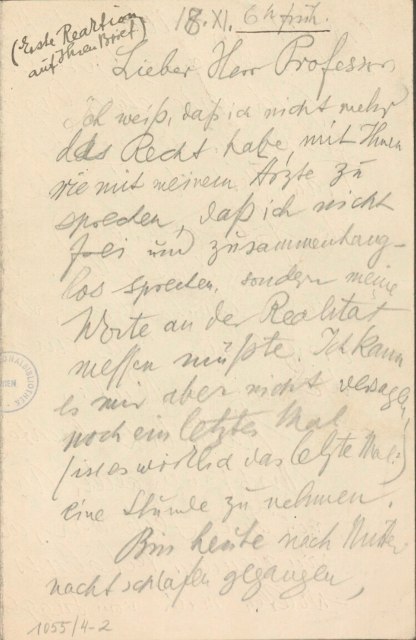 (Erste Reaktion
auf Ihren Brief)
18. XI. 6h früh.
Lieber Herr Professor
Ich weiß, daß ich nicht mehr
das Recht habe, mit Ihnen
wie mit meinem Arzte zu
sprechen, daß ich nicht
frei und zusammenhang-
los sprechen, sondern meine
Worte an der Realität
messen müßte. Ich kann
es mir aber nicht versagen
noch ein letztes Mal
(ist es wirklich das letzte Mal?)
eine Stunde zu nehmen.
Bin heute nach Mitter
nacht schlafen gegangen,
1055/4-2